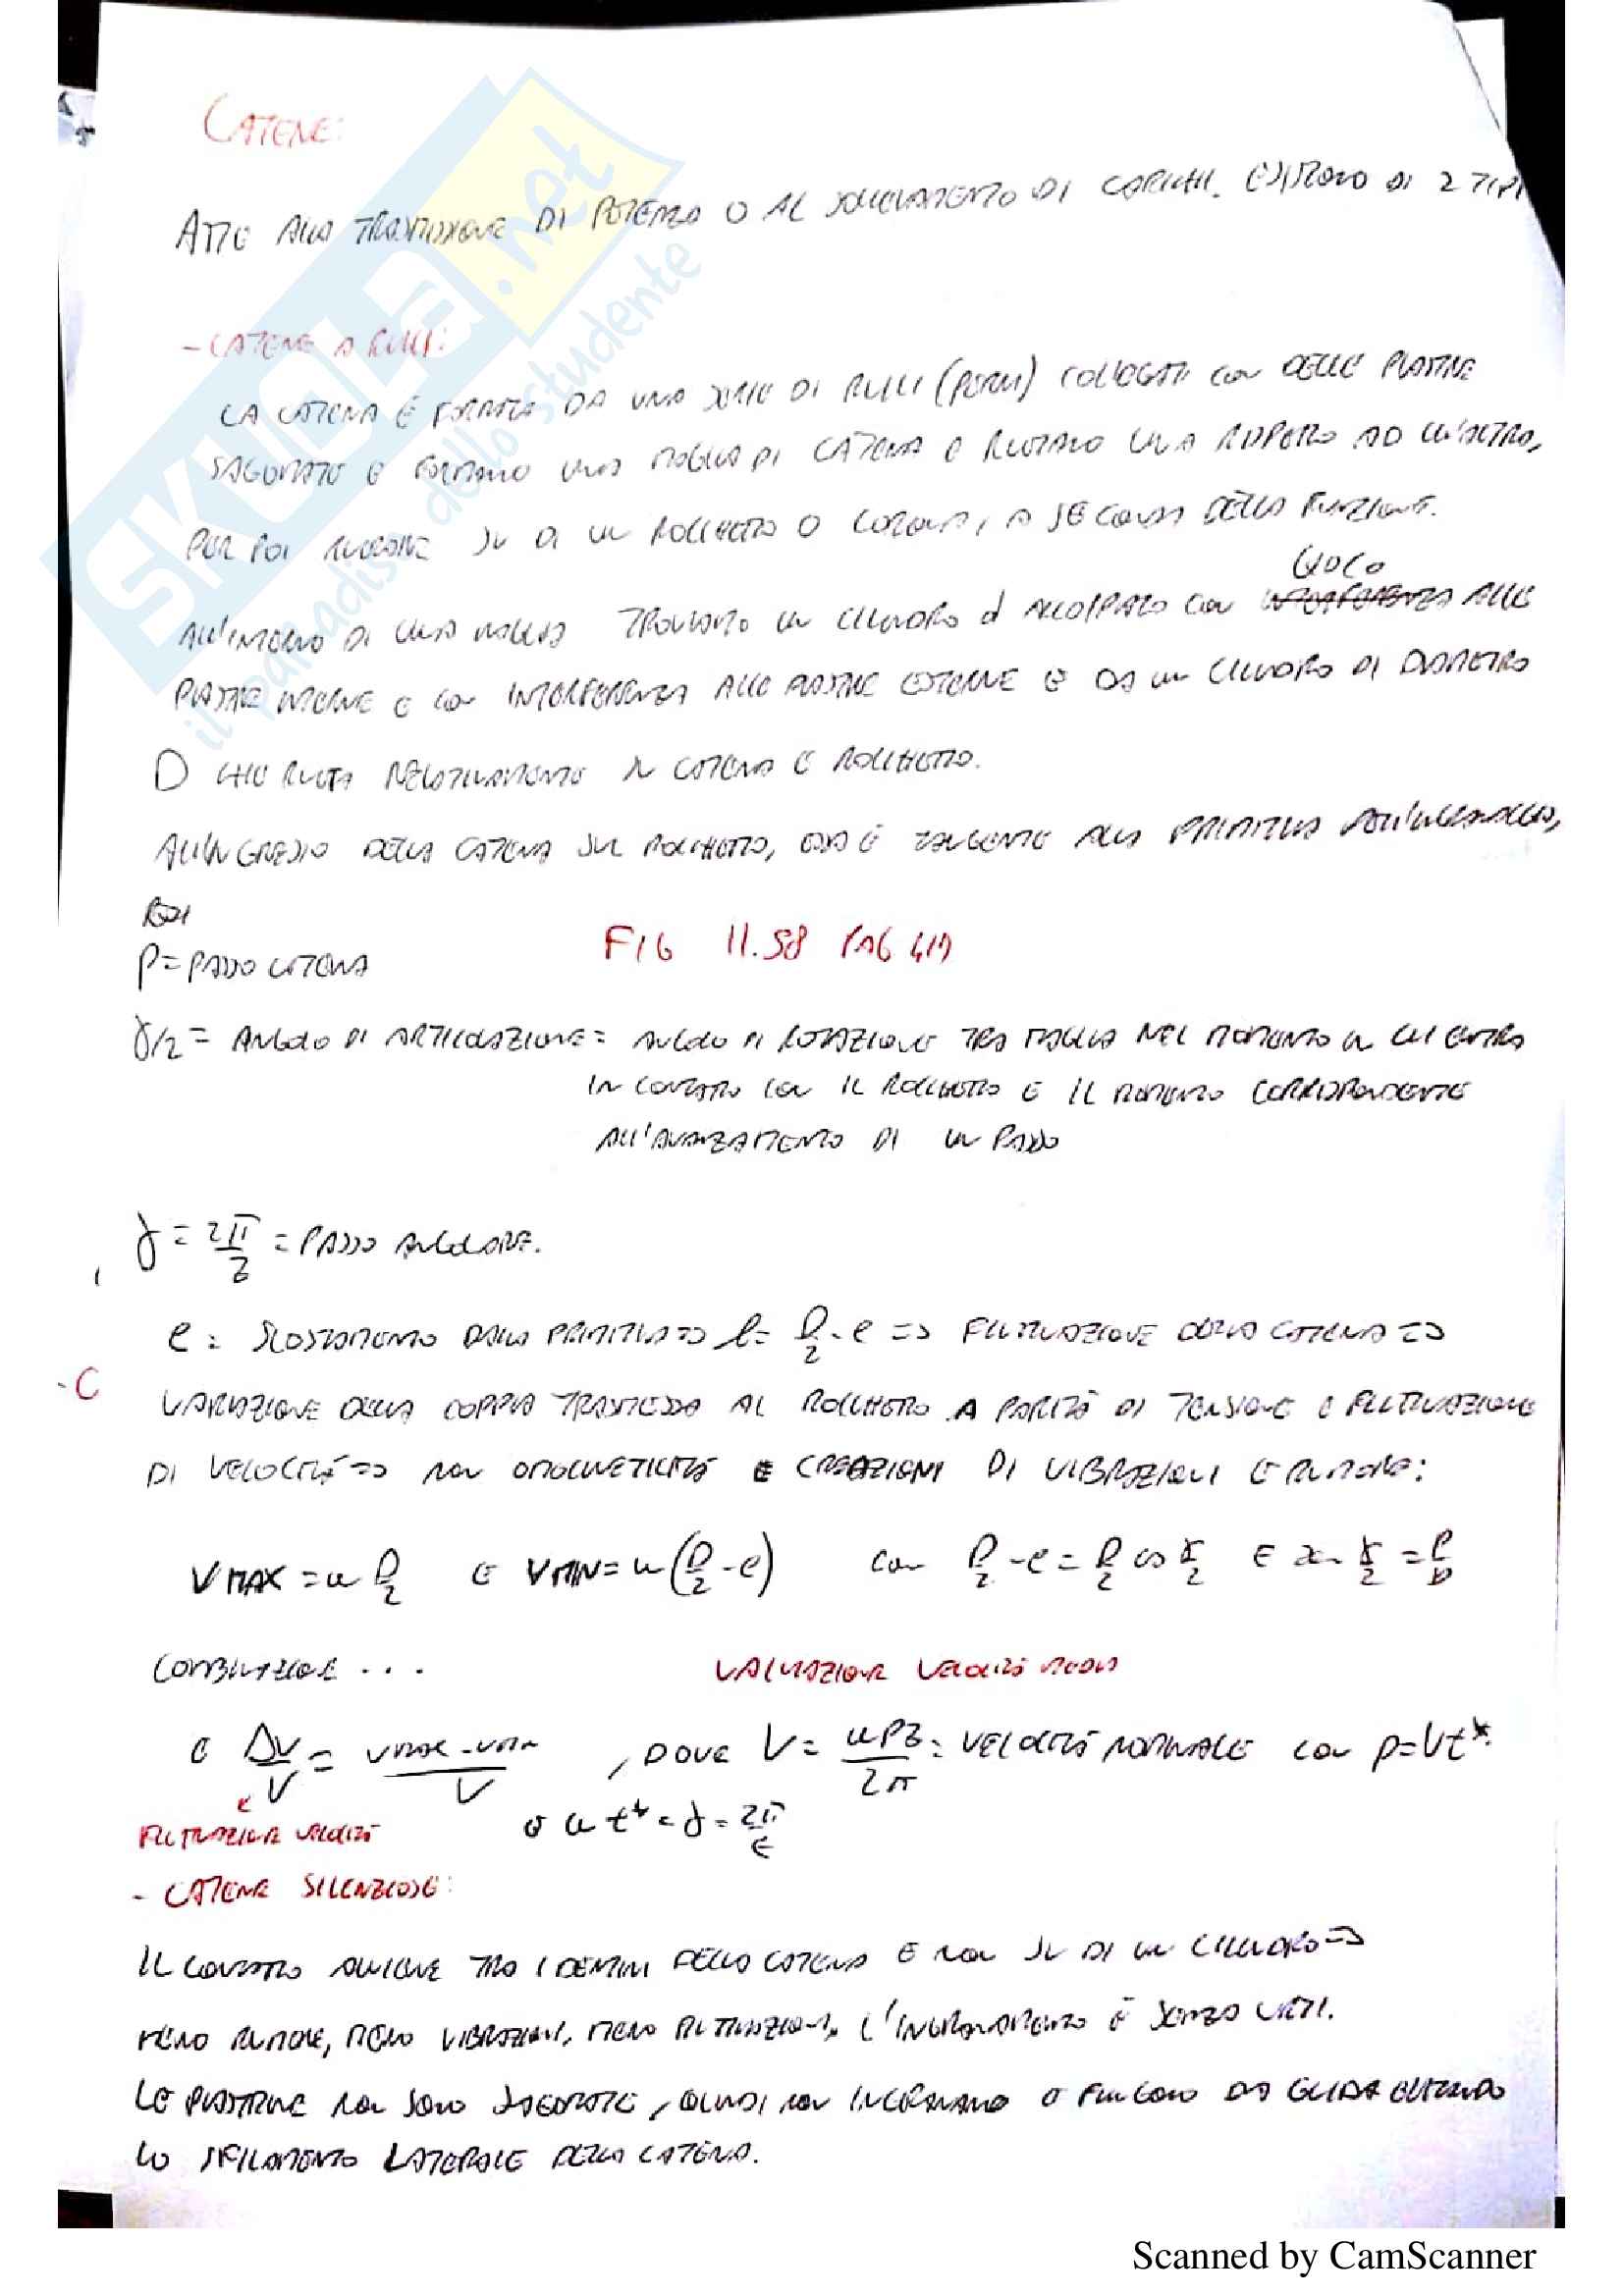 CATENE:
ATTE ALLA TRASMISSIONE DI POTENZA O AL SOLLEVAMENTO DI CARICHI. ESISTONO DI 2 TIPI
- CATENE A RULLI:
LA CATENA È FORMATA DA UNA SERIE DI RULLI (PERNI) COLLEGATI CON DELLE PIASTRE
SAGOMATE E FORMANO UNA MAGLIA DI CATENA E RUOTANO UNA RISPETTO AD UN'ALTRA,
PER POI SU DI UN ROCCHETTO O CORONA, A SECONDA DELLA FUNZIONE.
GIOCO
ALL'INTERNO DI UNA MAGLIA TROVIAMO UN CILINDRO d ACCOPPIATO CON INTERFERENZA ALLE
PIASTRE INTERNE E CON INTERFERENZA ALLE PIASTRE ESTERNE E DA UN CILINDRO DI DIAMETRO
D CHE RUOTA RELATIVAMENTE SU CATENA E ROCCHETTO.
ALL'INGRESSO DELLA CATENA SUL ROCCHETTO, ESSA È TANGENTE ALLA PRIMITIVA DELL'INGRANAGGIO,
POI
P = PASSO CATENA
FIG 11.58 PAG 419
γ/2 = ANGOLO DI ARTICOLAZIONE = ANGOLO DI ROTAZIONE TRA MAGLIA NEL MOMENTO IN CUI ENTRA
IN CONTATTO CON IL ROCCHETTO E IL MOMENTO CORRISPONDENTE
ALL'AVANZAMENTO DI UN PASSO
γ = 2π/Z = PASSO ANGOLARE.
e = SCOSTAMENTO DALLA PRIMITIVA => l = D/2 - e => FLUTTUAZIONE DELLA CATENA =>
- C
VARIAZIONE DELLA COPPIA TRASMESSA AL ROCCHETTO A PARITÀ DI TENSIONE E FLUTTUAZIONE
DI VELOCITÀ => NON OMOCINETICITÀ E CREAZIONI DI VIBRAZIONI E RUMORE:
V MAX = ω D/2 E V MIN = ω(D/2 - e) CON D/2 - e = D/2 cos γ/2 E sin γ/2 = P/D
COMBINAZIONE ... VALUTAZIONE VELOCITÀ MEDIA
E ΔV/V = VMAX - VMIN/V , DOVE V = ωPZ/2π = VELOCITÀ NORMALE CON p = Vt*
FLUTTUAZIONE VELOCITÀ
e ω t* = γ = 2π/Z
- CATENE SILENZIOSE:
IL CONTATTO AVVIENE TRA I DENTINI DELLA CATENA E NON SU DI UN CILINDRO =>
MENO RUMORE, MENO VIBRAZIONI, MENO FLUTTUAZIONI, L'INGRANAMENTO È SENZA URTI.
LE PIASTRINE NON SONO SAGOMATE, QUINDI NON INGRANANO E FUNGONO DA GUIDA EVITANDO
LO SFILAMENTO LATERALE DELLA CATENA.
SKUOLa.net
il paradiso dello studente
Scanned by CamScanner